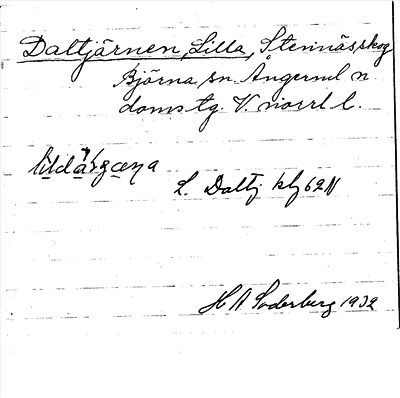 Daltjärnen, Lilla, Stennässkog
Björna sn. Ångerml n
doms tg. V. norrl l.
L. Daltj klg 62 N
H A Soderberg 1932